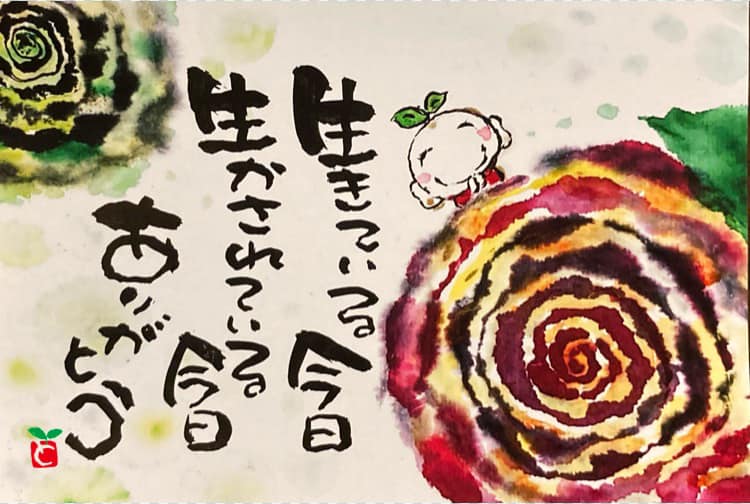 生きている。今日
生かされている。今日
ありがとう